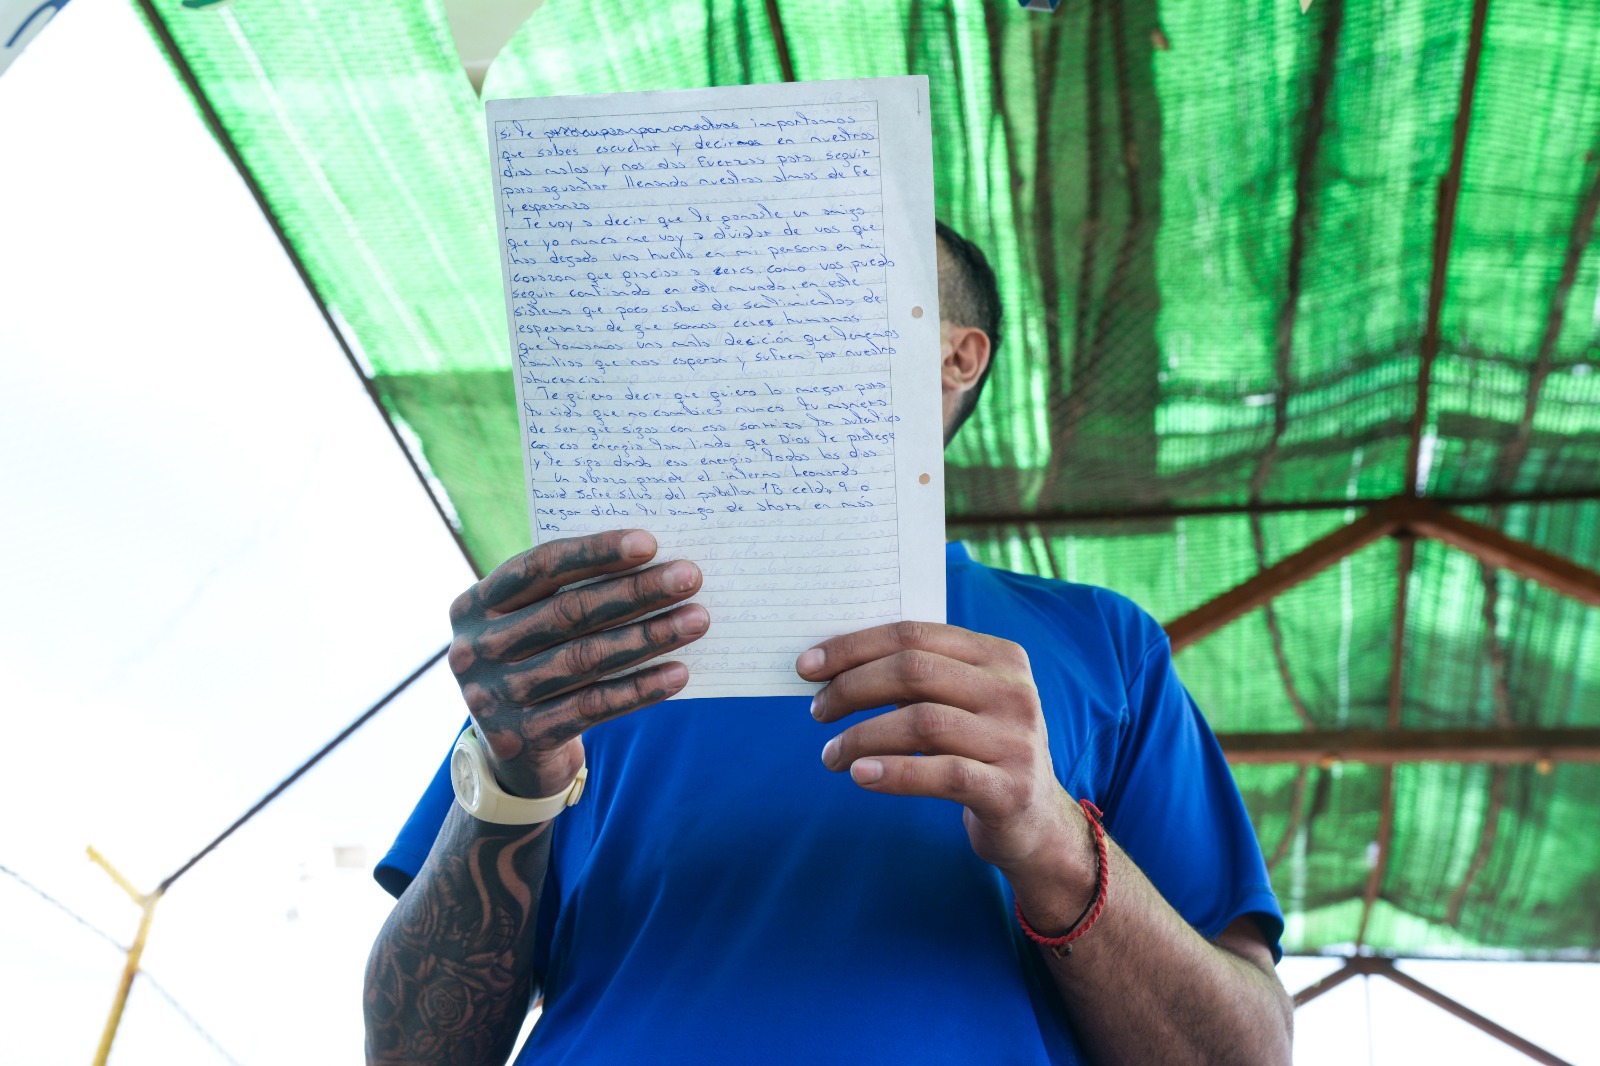 si te importamos
que sabes escuchar y decirnos en nuestros
dias malos y nos das fuerzas para seguir
para aguantar llenando nuestras almas de fe
y esperanza
Te voy a decir que te ganaste un amigo
que yo nunca me voy a olvidar de vos que
has degado una huella en mi persona en mi
corazon que gracias a ceres como vos puedo
seguir confiando en este mundo, en este
sistema que poco sabe de sentimientos de
esperanza de que somos ceres humanos
que tomamos una mala decicion que tenemos
familias que nos esperan y sufren por nuestra
ahucencia.
Te quiero decir que quiero lo megor para
tu vida que no cambies nunca tu manera
de ser que sigas con esa sonrriza tan autentica
con esa energia tan linda que Dios te protege
y te siga dando esa energia todos los dias
Un abrazo grande el interno Leonardo
David Sofre Silva del pabellon 1B celda 9 o
megor dicho tu amigo de ahora en mas
Leo